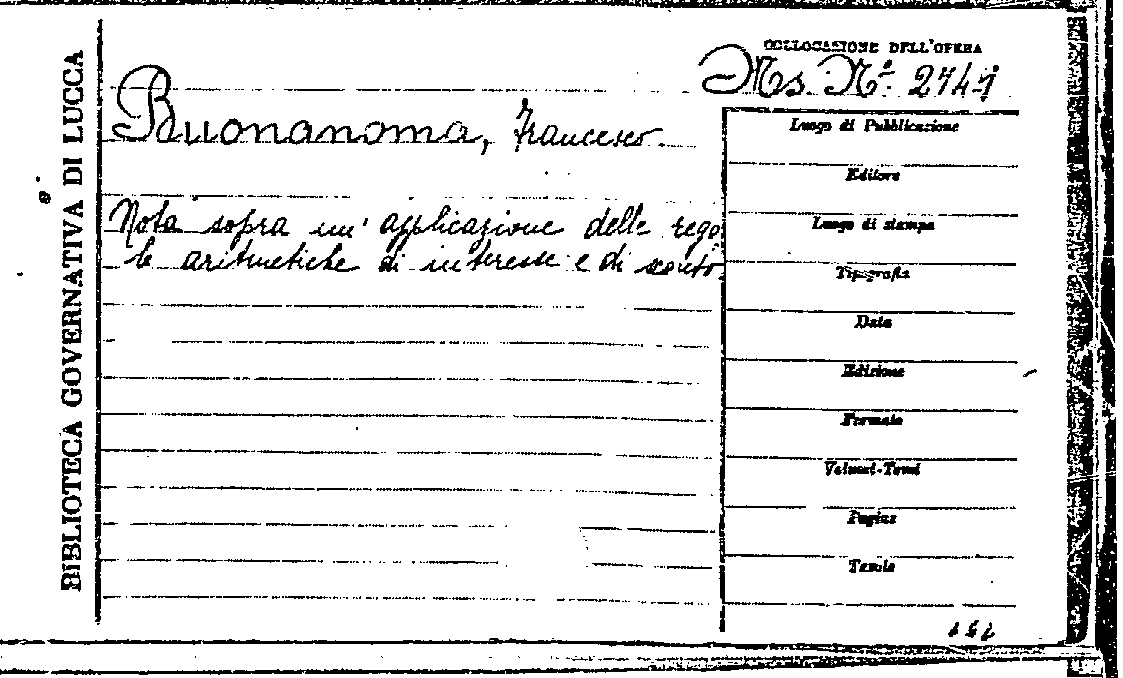 BIBLIOTECA GOVERNATIVA DI LUCCA
COLLOCAZIONE DELL'OPERA
Ms. Nº. 2741
Buonanoma, Francesco.
Nota sopra un' applicazione delle rego
le aritmetiche di interesse e di sconto.
Luogo di Pubblicazione
Editore
Luogo di stampa
Tipografia
Data
Edizione
Formato
Volumi-Tomi
Pagine
Tavole